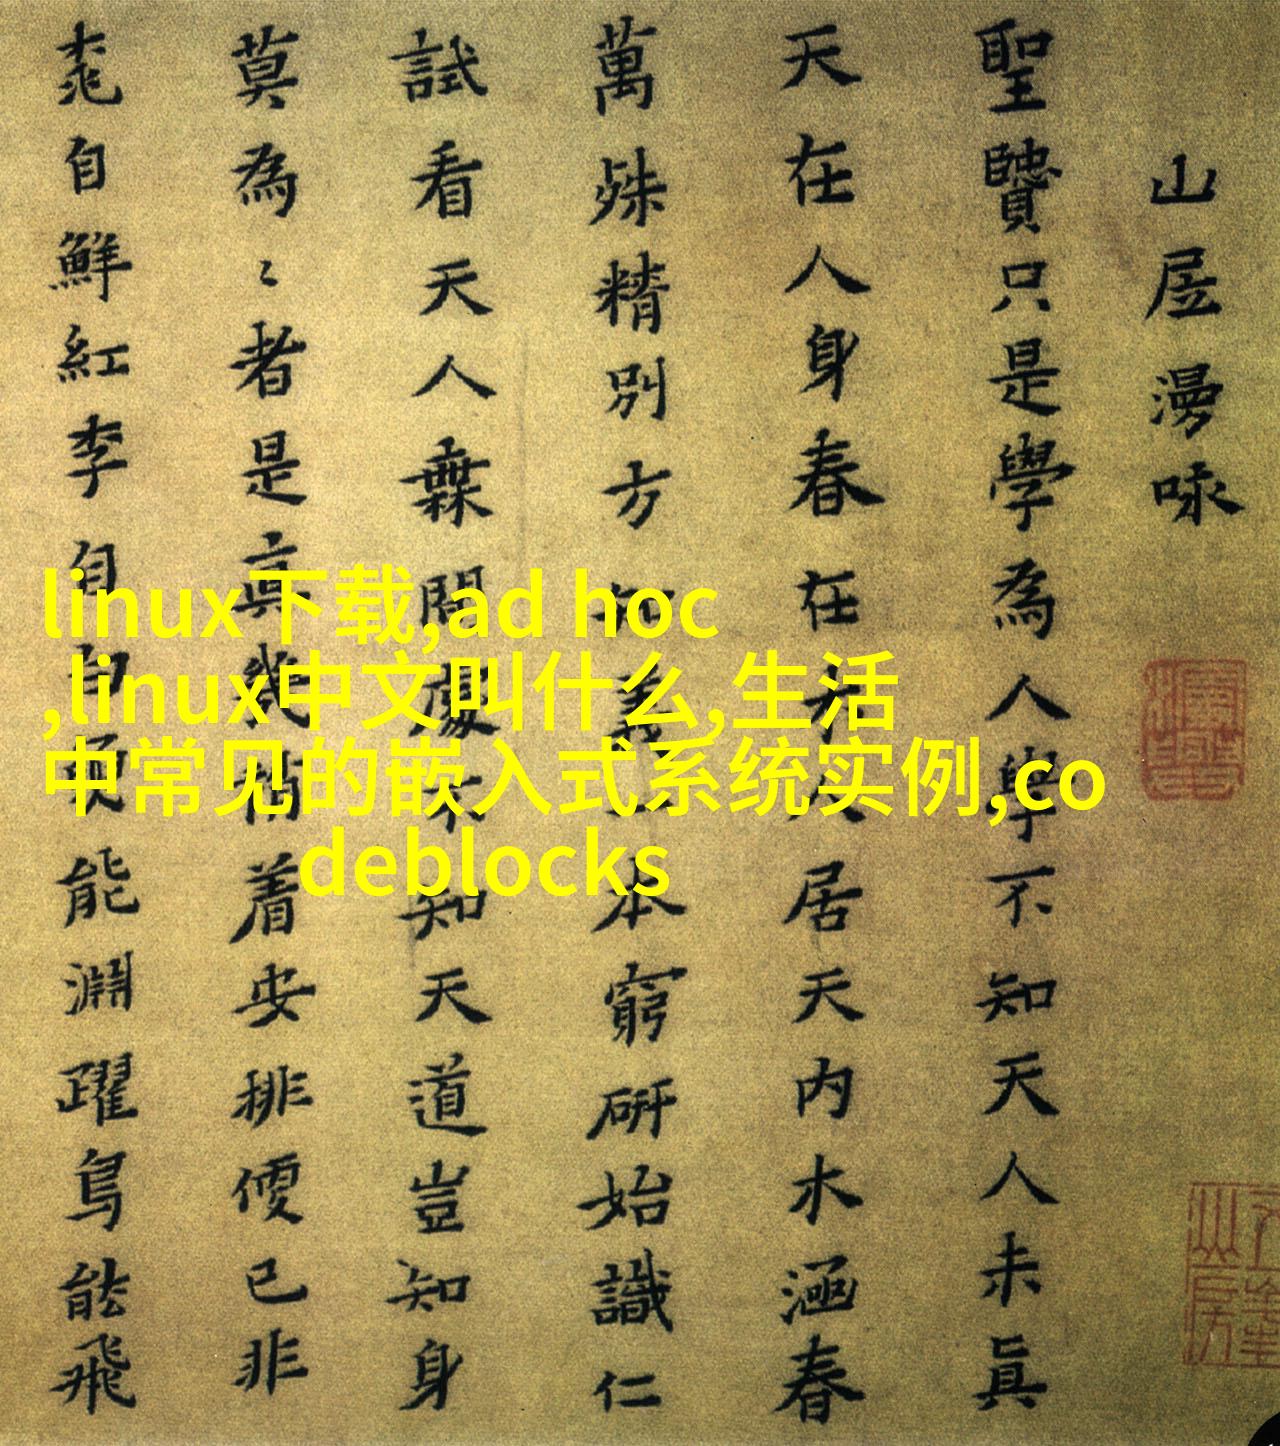 山居漫咏
聖賢只是學為人學不知天人未真
天在人身春在木人居天內木涵春
萬殊精別方知義一本窮研始識仁
試看天人無間處不知天道豈知身
莫為〻者是真幾稍着安排便已非
桃自鮮紅李自白魚能淵躍鳥能飛
linux下载,ad hoc
,linux中文叫什么,生活
中常见的嵌入式系统实例,co
deblocks